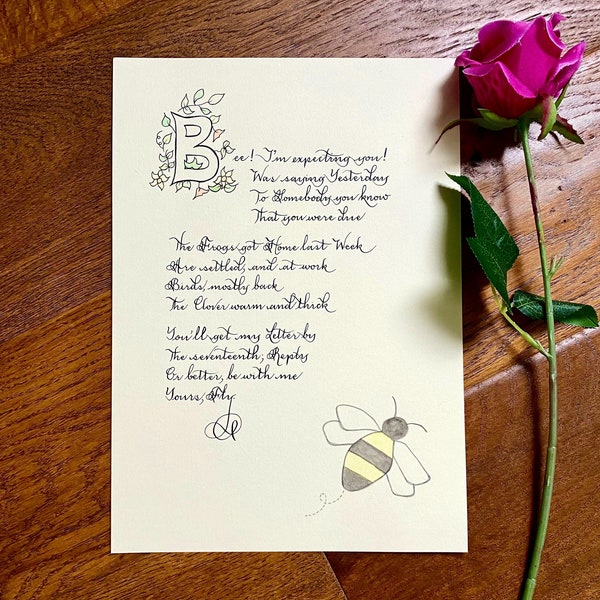 Bee! I'm expecting you!
Was saying Yesterday
To Somebody you know
That you were due
The Frogs got Home last Week
Are settled, and at work
Birds, mostly back
The Clover warm and thick
You'll get my Letter by
The seventeenth; Reply
Or better, be with me
Yours, Fly.